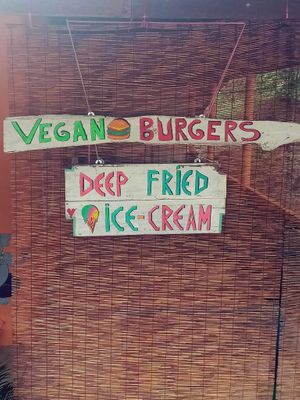 VEGAN BURGERS
DEEP FRIED
ICE-CREAM